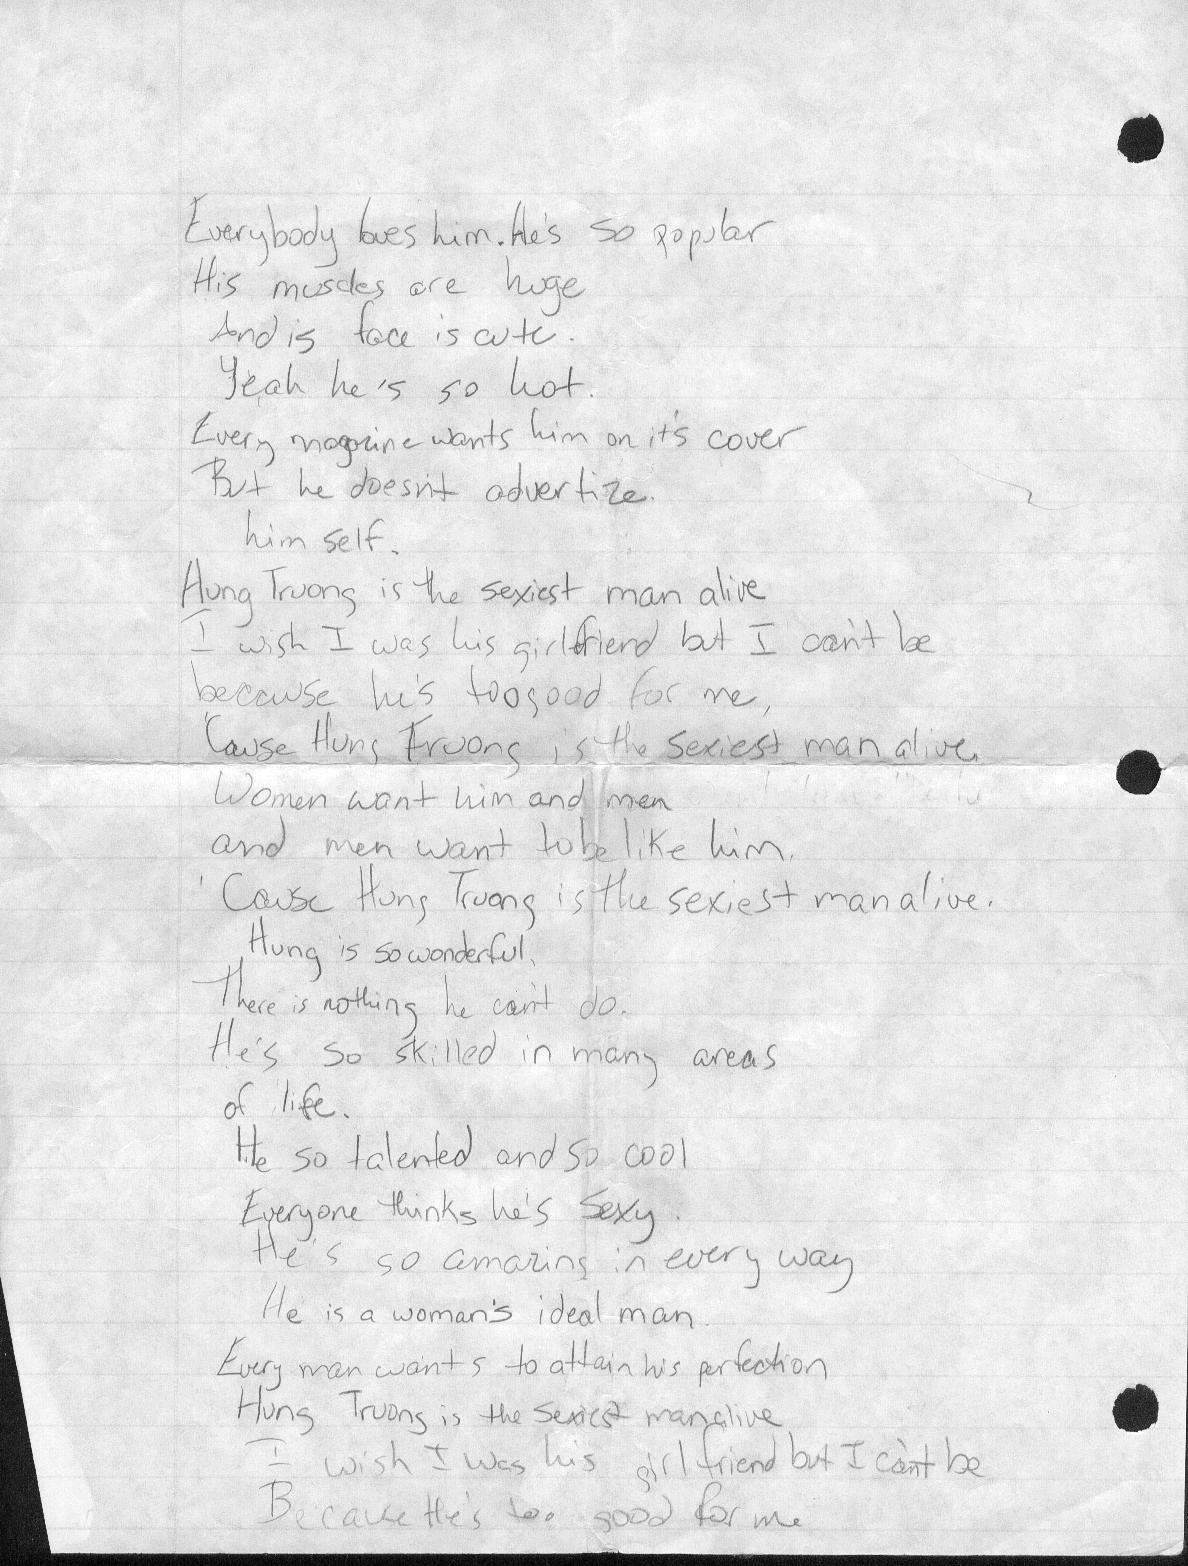 Everybody loves him. He's so popular
His muscles are huge
And is face is cute.
Yeah he's so hot.
Every magazine wants him on it's cover
But he doesn't advertize.
him self.
Hung Truong is the sexiest man alive
I wish I was his girlfriend but I can't be
because he's too good for me,
'Cause Hung Truong is the sexiest man alive.
Women want him and men
and men want to be like him.
'Cause Hung Truong is the sexiest man alive.
Hung is so wonderful.
There is nothing he can't do.
He's so skilled in many areas
of life.
He so talented and so cool
Everyone thinks he's sexy.
He's so amazing in every way
He is a woman's ideal man.
Every man wants to attain his perfection
Hung Truong is the sexiest man alive
I wish I was his girlfriend but I can't be
Because He's too good for me